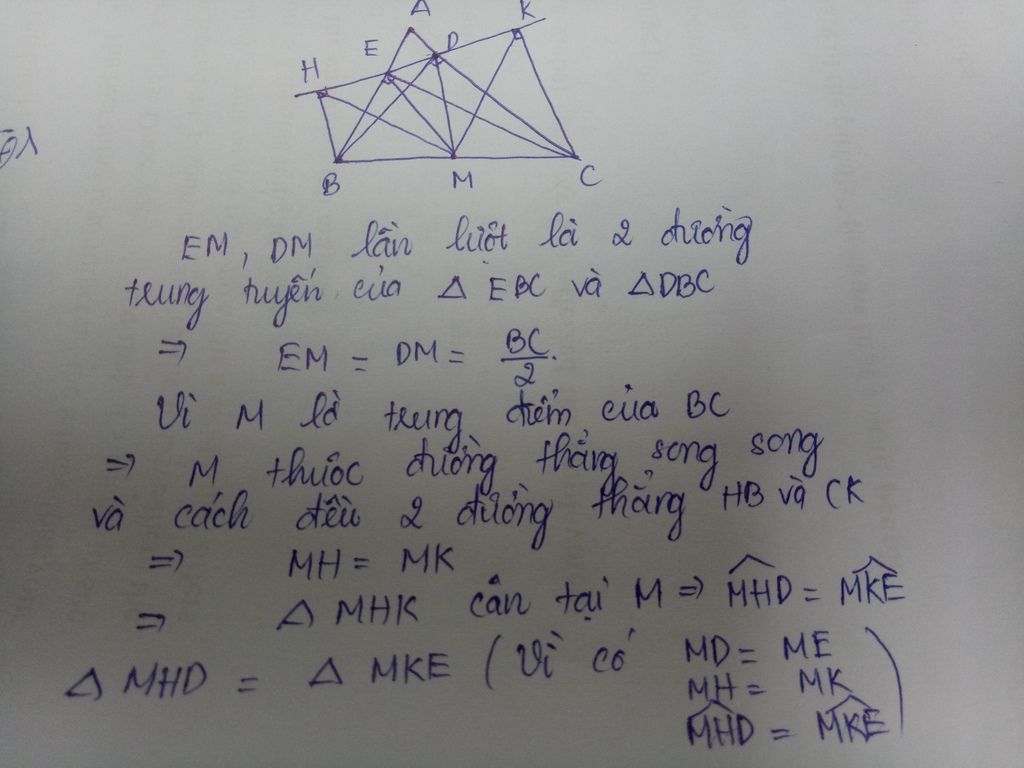 A
K
E
D
H
B
M
C
EM, DM lần lượt là 2 đường
trung tuyến của Δ EBC và ΔDBC
⇒ EM = DM = BC/2.
Vì M là trung điểm của BC
⇒ M thuộc đường thẳng song song
và cách đều 2 đường thẳng HB và CK
⇒ MH = MK
⇒ Δ MHK cân tại M ⇒ \widehat{MHD} = \widehat{MKE}
Δ MHD = Δ MKE (Vì có MD = ME
MH = MK
\widehat{MHD} = \widehat{MKE})